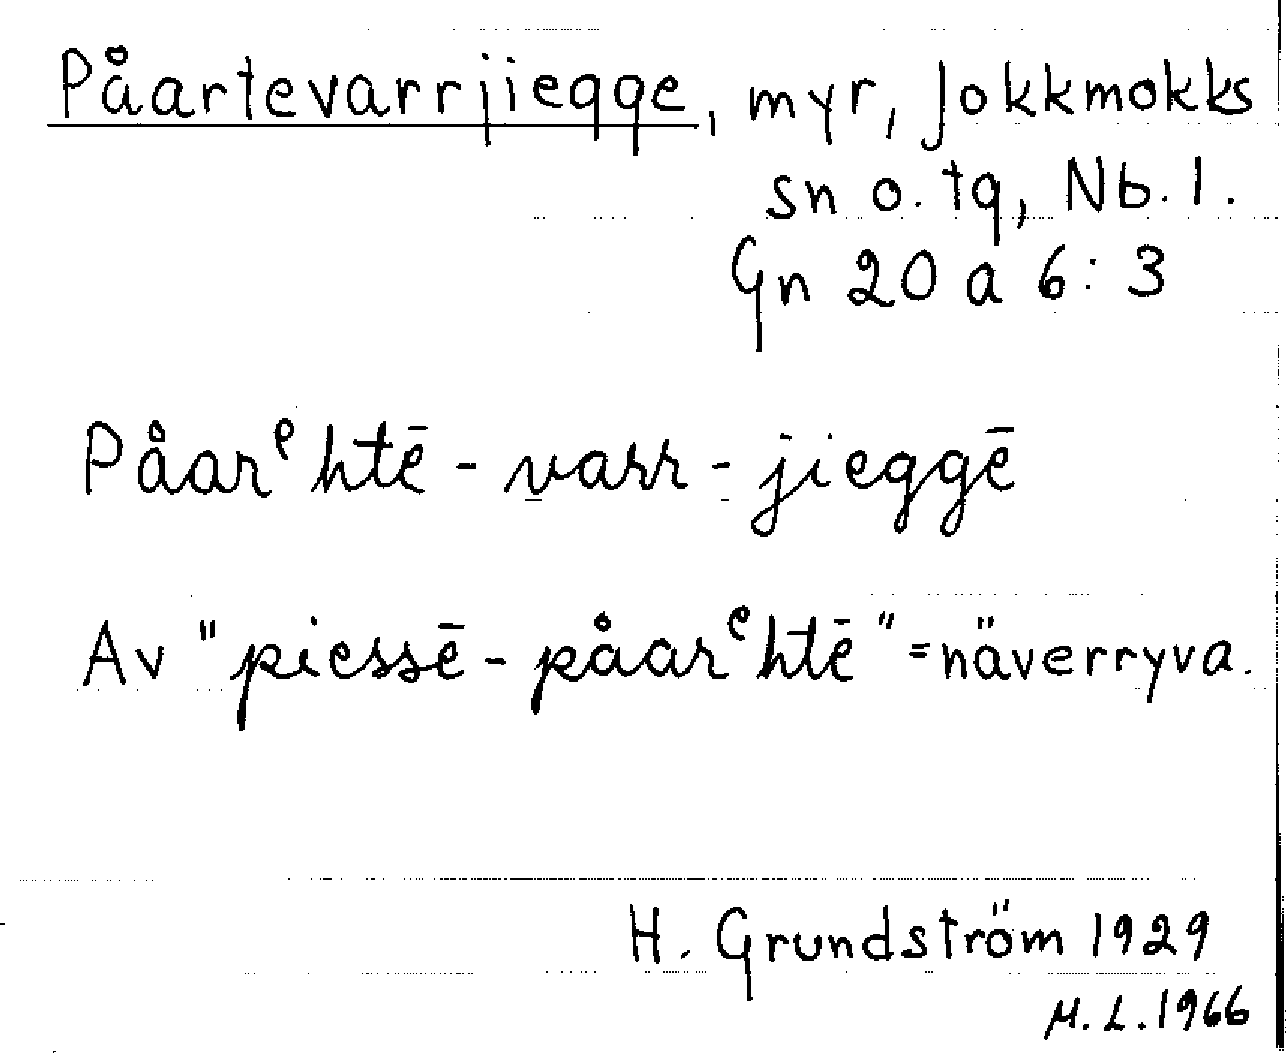 Påartevarrjiegge, myr, Jokkmokks
sn o. tg, Nb. l.
Gn 20 a 6:3
Påarᵉhtē-v̲arr-jieggē
Av "piessē-påarᵉhtē" = näverryva.
H. Grundström 1929
M.L. 1966